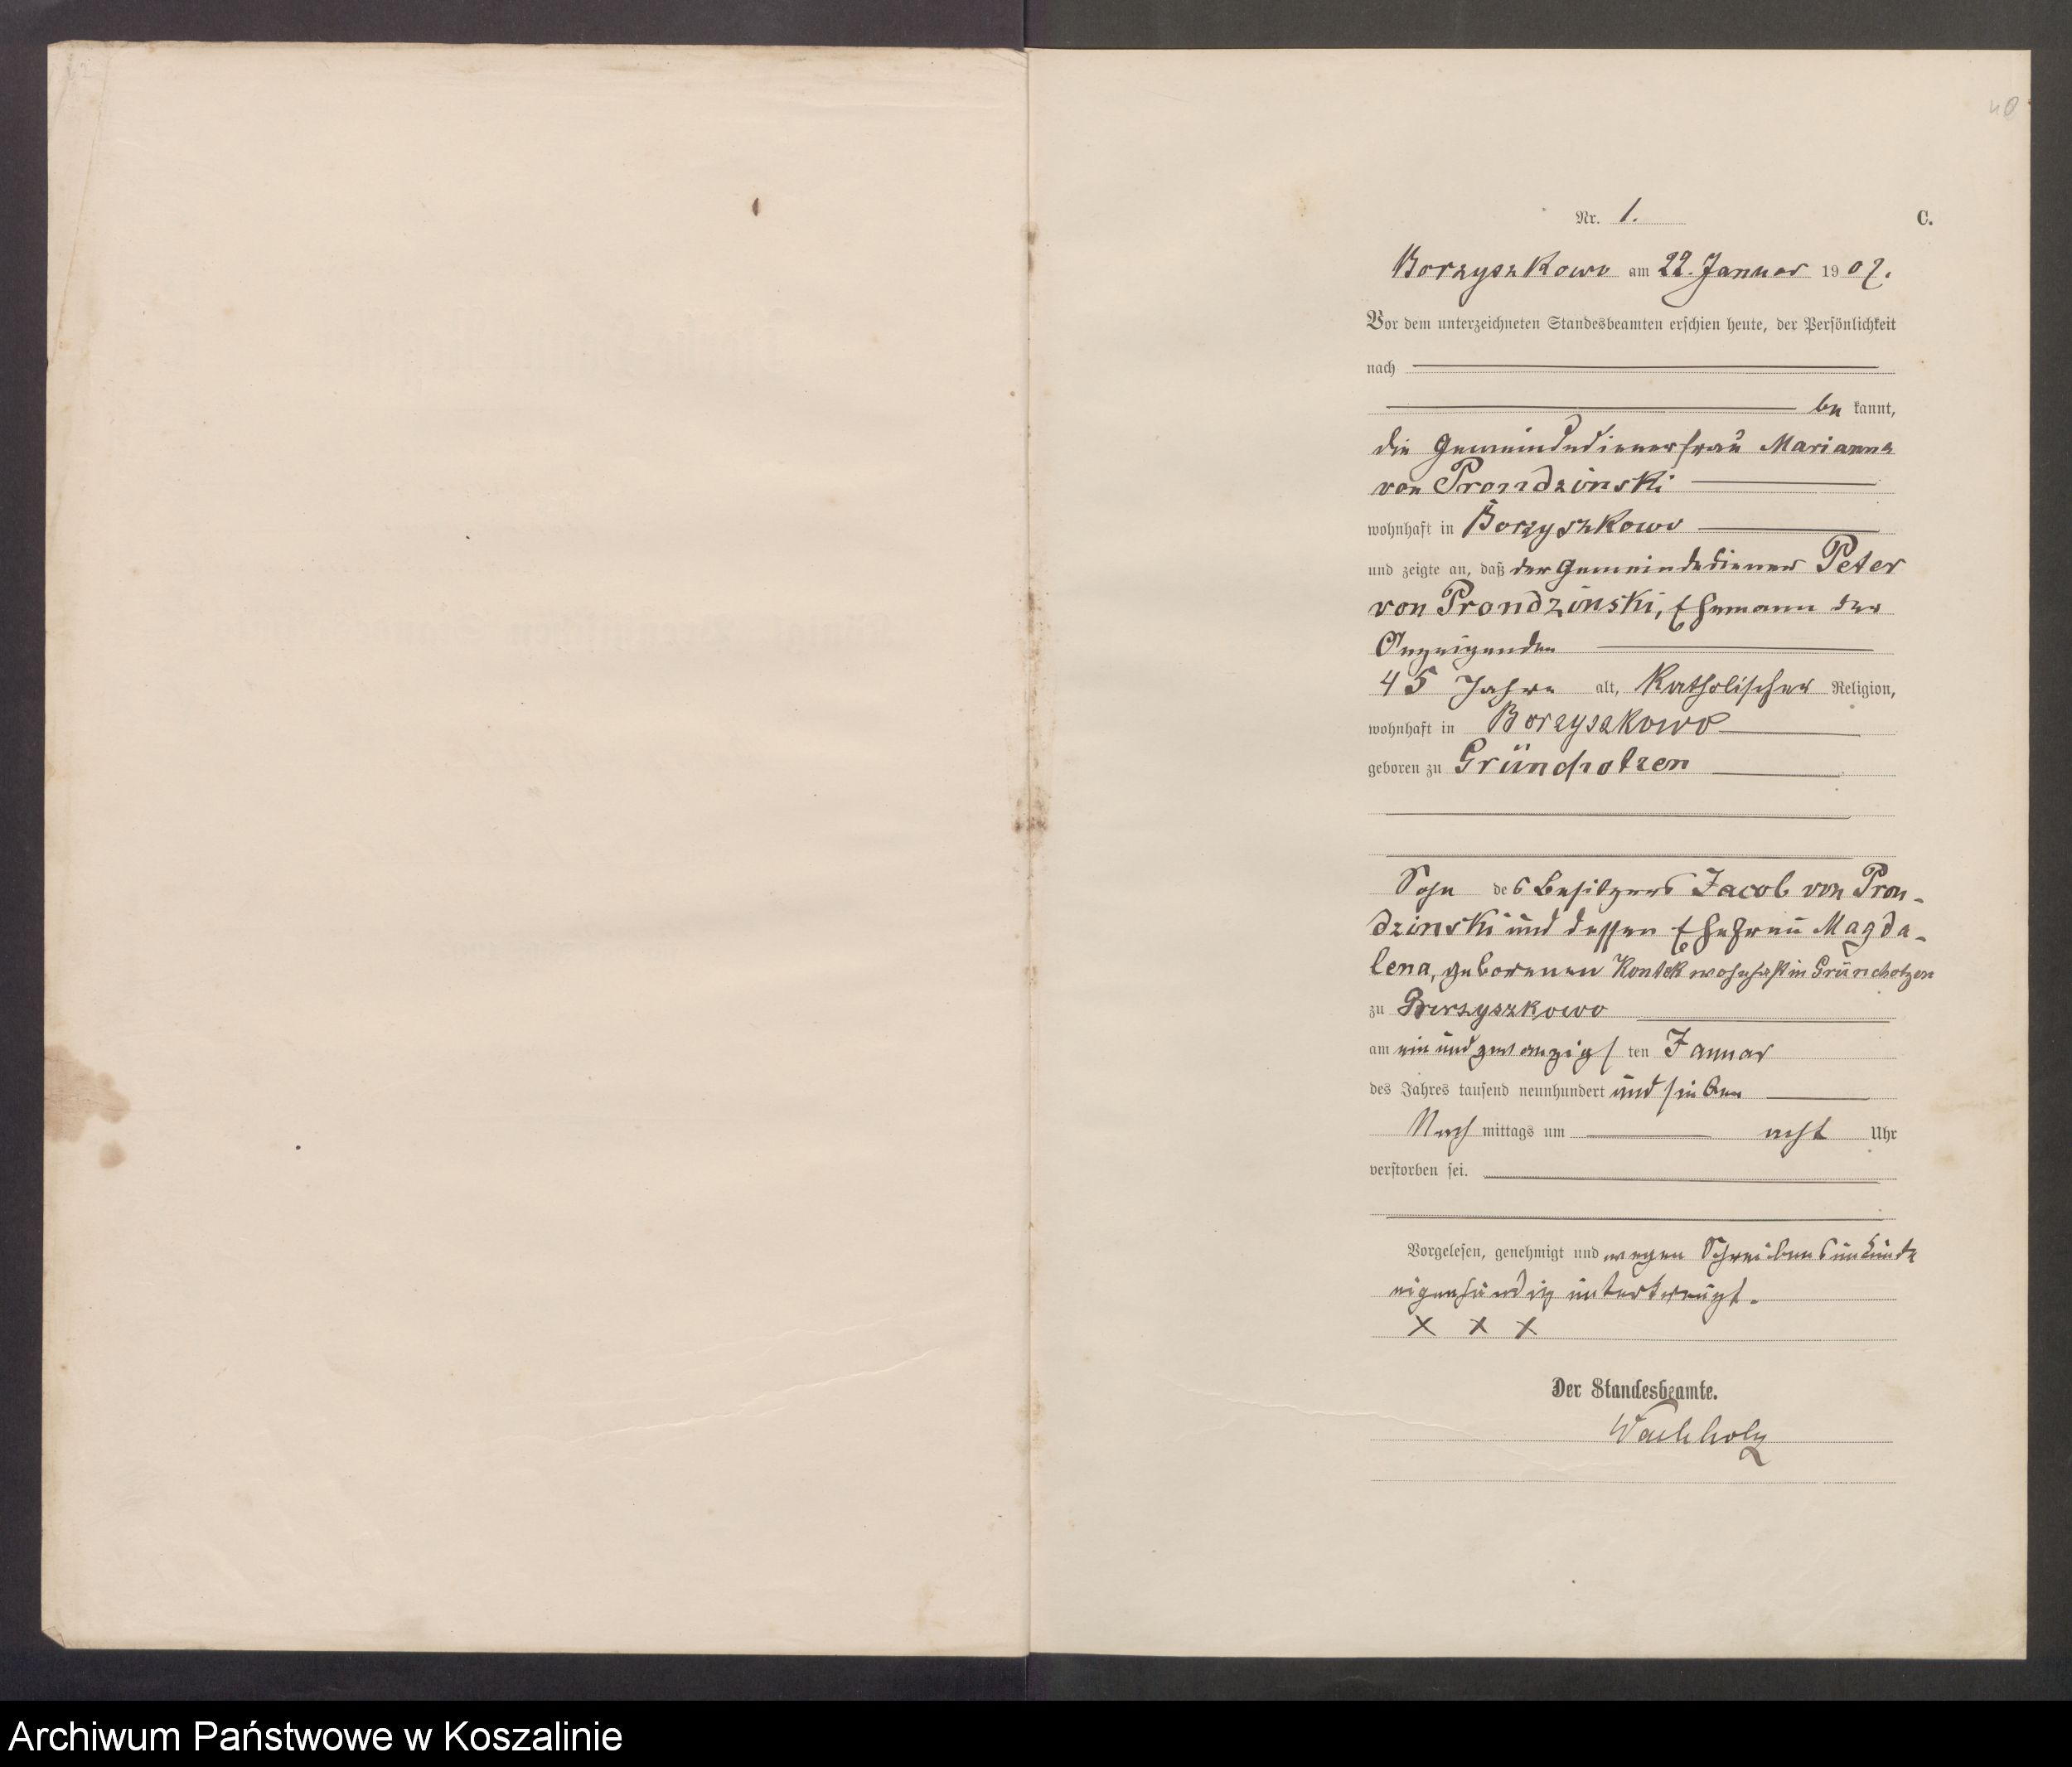 40
Nr. 1. C.
Borzyszkowo am 22. Januar 1907.
Vor dem unterzeichneten Standesbeamten erschien heute, der Persönlichkeit
nach
be kannt,
die Gemeindedienerfrau Marianna
von Prondzinski
wohnhaft in Borzyszkowo
und zeigte an, daß der Gemeindediener Peter
von Prondzinski, Ehemann der
Anzeigenden
45 Jahre alt, Katholischer Religion,
wohnhaft in Borzyszkowo
geboren zu Grünchotzen
Sohn des Besitzers Jacob von Pron-
dzinski und dessen Ehefrau Magda-
lena, geborenen Kontek wohnhaft in Grünchotzen
zu Borzyszkowo
am ein und zwanzigsten Januar
des Jahres tausend neunhundert und sieben
Nach mittags um acht Uhr
verstorben sei.
Vorgelesen, genehmigt und wegen Schreibensunkunde
eigenhändig unterkreuzt.
X X X
Der Standesbeamte.
Wachholz
Archiwum Państwowe w Koszalinie